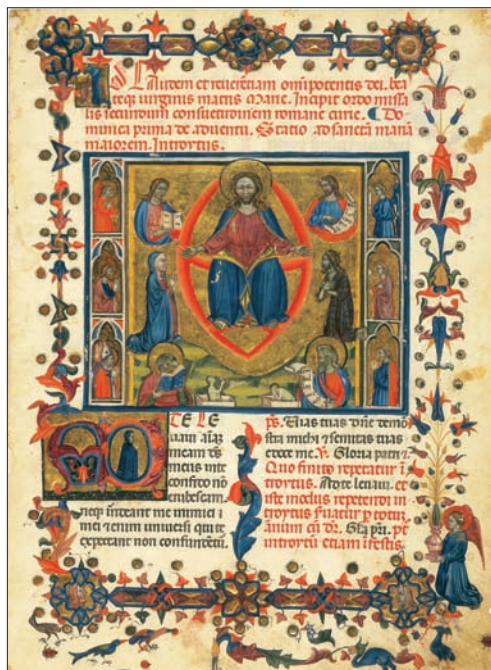 Ad Laudem et reverentiam omnipotentis dei. bea
teqȝ virginis matris Marie. Incipit ordo missa
lis secundum consuetudinem romane curie. Do
minica prima de adventu. Statio ad sanctam mariā
maiorem. Introytus.
AD TE LE
vavi aīaȝ
meam ds
meus in te
confido nō
erubescam.
neqȝ irrideant me inimici
mei etenim universi qui te
expectant non confundētur.
ps. Vias tuas dn̄e demō
stra michi et semitas tuas
edoce me. V. Gloria patri.
Quo finito repetatur ī
troytus. Ad te levavi. et
iste modus repetendi in
troytus servatur per totuȝ
annum
introytū etiam in festis.